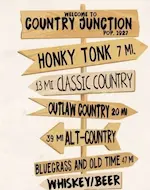 WELCOME TO
COUNTRY JUNCTION
POP. 1927
HONKY TONK 7 MI.
13 MI. CLASSIC COUNTRY
OUTLAW COUNTRY 20 MI
39 MI ALT-COUNTRY
BLUEGRASS AND OLD TIME 47 MI.
WHISKEY/BEER